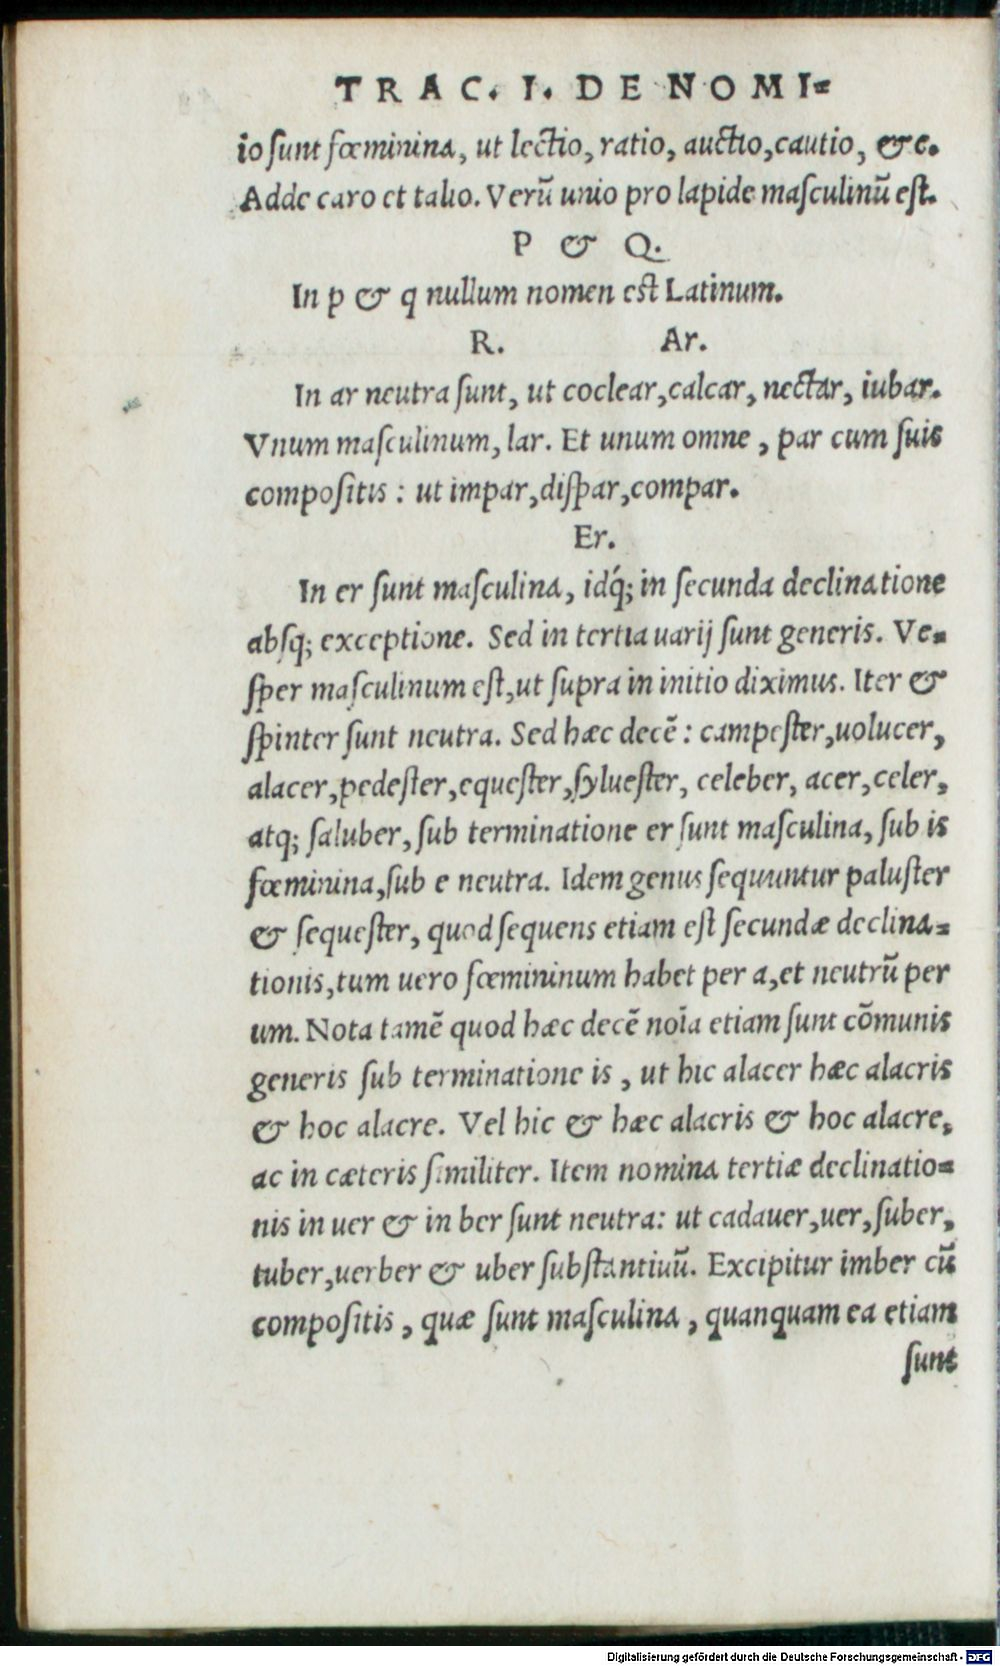 TRAC. I. DE NOMI=
io sunt fœminina, ut lectio, ratio, auctio, cautio, &c.
Adde caro et talio. Verū unio pro lapide masculinū est.
P & Q.
In p & q nullum nomen est Latinum.
R. Ar.
In ar neutra sunt, ut coclear, calcar, nectar, iubar.
Vnum masculinum, lar. Et unum omne, par cum suis
compositis: ut impar, dispar, compar.
Er.
In er sunt masculina, idq́; in secunda declinatione
absq; exceptione. Sed in tertia uarij sunt generis. Ve=
sper masculinum est, ut supra in initio diximus. Iter &
spinter sunt neutra. Sed hæc decē: campester, uolucer,
alacer, pedester, equester, syluester, celeber, acer, celer,
atq; saluber, sub terminatione er sunt masculina, sub is
fœminina, sub e neutra. Idem genus sequuntur paluster
& sequester, quod sequens etiam est secundæ declina=
tionis, tum uero fœmininum habet per a, et neutrū per
um. Nota tamē quod hæc decē noīa etiam sunt cōmunis
generis sub terminatione is, ut hic alacer hæc alacris
& hoc alacre. Vel hic & hæc alacris & hoc alacre,
ac in cæteris similiter. Item nomina tertiæ declinatio=
nis in uer & in ber sunt neutra: ut cadauer, uer, suber,
tuber, uerber & uber substantiuū. Excipitur imber cū
compositis, quæ sunt masculina, quanquam ea etiam
sunt
Digitalisierung gefördert durch die Deutsche Forschungsgemeinschaft - DFG